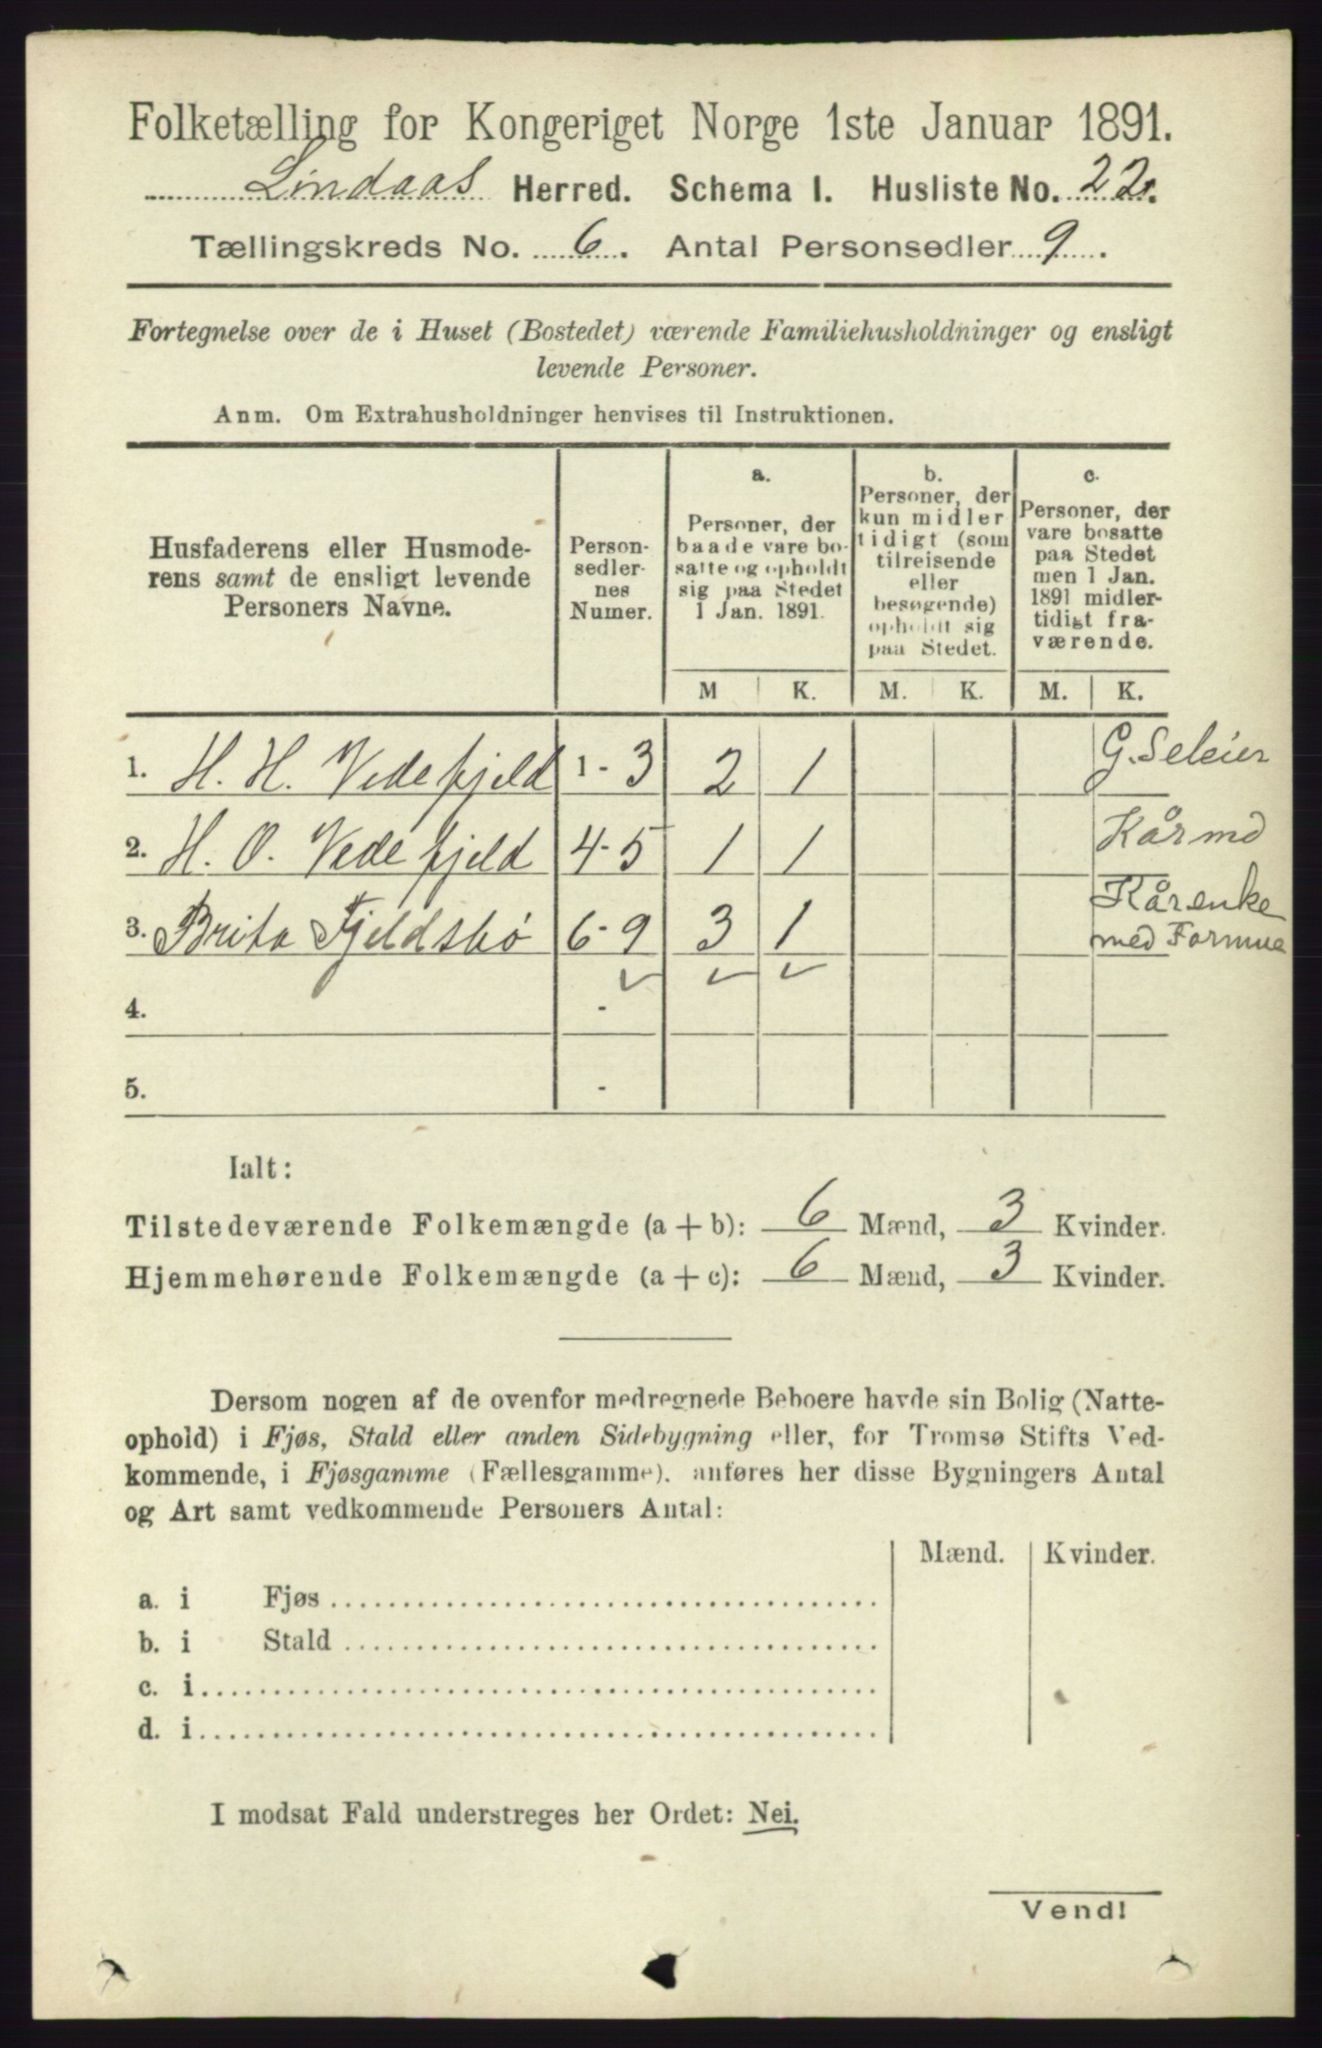 Folketælling for Kongeriget Norge 1ste Januar 1891.
Lindaas Herred. Schema I. Husliste No. 22.
Tællingskreds No. 6. Antal Personsedler 9.
Fortegnelse over de i Huset (Bostedet) værende Familiehusholdninger og ensligt
levende Personer.
Anm. Om Extrahusholdninger henvises til Instruktionen.
Husfaderens eller Husmode-
rens samt de ensligt levende
Personers Navne.
Person-
sedler-
nes
Numer.
a.
Personer, der
baade vare bo-
satte og opholdt
sig paa Stedet
1 Jan. 1891.
b.
Personer, der
kun midler
tidigt (som
tilreisende
eller
besøgende)
opholdt sig
paa Stedet.
c.
Personer, der
vare bosatte
paa Stedet
men 1 Jan.
1891 midler-
tidigt fra-
værende.
M K. M. K. M. K.
1. H. H. Vedefjeld 1 - 3 2 1 G. Seleier
2. H. O. Vedefjeld 4-5 1 1 Kårmd
3. Brita Fjeldsbø 6-9 3 1 Kårenke
med Formue
4. -
5. -
Ialt:
Tilstedeværende Folkemængde (a + b): 6 Mænd, 3 Kvinder.
Hjemmehørende Folkemængde (a + c): 6 Mænd, 3 Kvinder.
Dersom nogen af de ovenfor medregnede Beboere havde sin Bolig (Natte-
ophold) i Fjøs, Stald eller anden Sidebygning eller, for Tromsø Stifts Ved-
kommende, i Fjøsgamme (Fællesgamme), anføres her disse Bygningers Antal
og Art samt vedkommende Personers Antal:
Mænd. Kvinder.
a. i Fjøs
b. i Stald
c. i
d. i
I modsat Fald understreges her Ordet: Nei.
Vend!